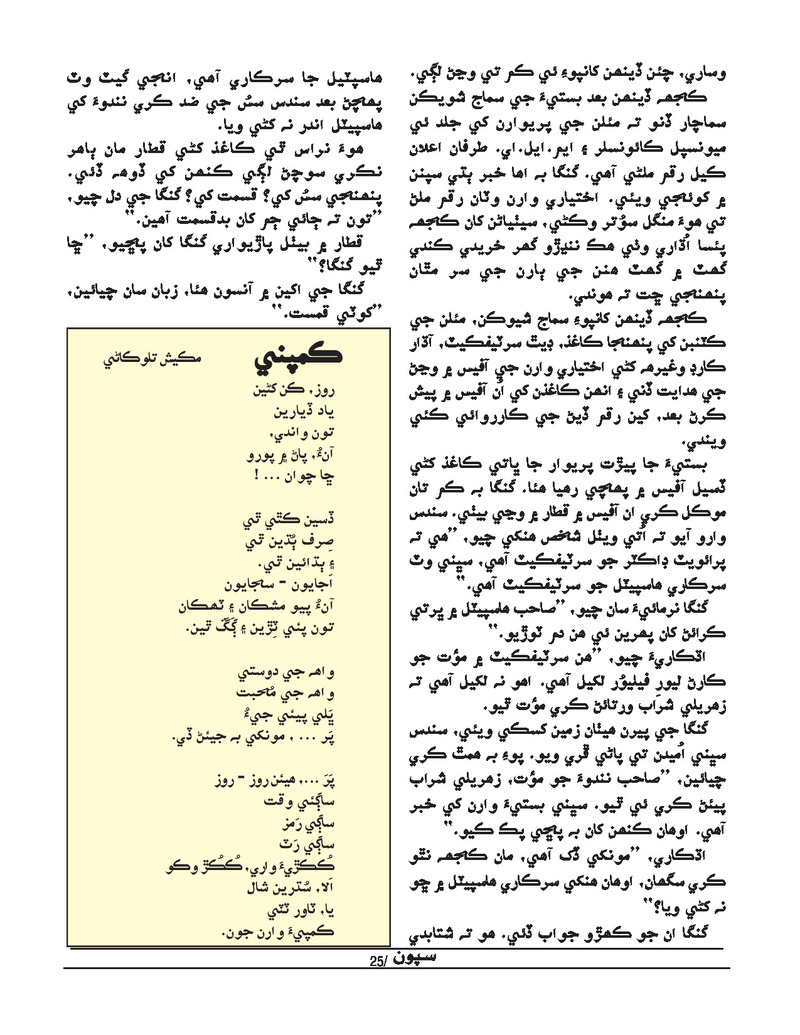 وساري، چئن ڏينهن کانپوءِ ئي ڪم تي وڃڻ لڳي.
ڪجهہ ڏينهن بعد بستيءَ جي سماج شويڪن
سماچار ڏنو تہ مئلن جي پريوارن کي جلد ئي
ميونسپل ڪائونسلر ۽ ايم.ايل.اي. طرفان اعلان
ڪيل رقم ملڻي آهي. گنگا بہ اها خبر ٻڌي سپنن
۾ کوئجي ويئي. اختياري وارن وٽان رقم ملڻ
تي هوءَ منگل سوُتر وڪڻي، سيٺياڻن کان ڪجهہ
پئسا اُڌاري وٺي هڪ ننڍڙو گهر خريدي ڪندي
گهٽ ۾ گهٽ هنن جي ٻارن جي سر مٿان
پنهنجي ڇت تہ هوندي.
ڪجهہ ڏينهن کانپوءِ سماج شيوڪن، مئلن جي
ڪٽنبن کي پنهنجا ڪاغذ، ڊيٿ سرٽيفڪيٽ، آڌار
ڪارڊ وغيرهہ کڻي اختياري وارن جي آفيس ۾ وڃڻ
جي هدايت ڏني ۽ انهن ڪاغذن کي اُن آفيس ۾ پيش
ڪرڻ بعد، کين رقم ڏيڻ جي ڪارروائي ڪئي
ويندي.
بستيءَ جا پيڙت پريوار جا ڀاتي ڪاغذ کڻي
ڏسيل آفيس ۾ پهچي رهيا هئا. گنگا بہ ڪم تان
موڪل ڪري ان آفيس ۾ قطار ۾ وڃي بيٺي. سندس
وارو آيو تہ اُتي ويٺل شخص هنکي چيو، ”هي تہ
پرائويٽ ڊاڪٽر جو سرٽيفڪيٽ آهي، سڀني وٽ
سرڪاري هاسپيٽل جو سرٽيفڪيٽ آهي.“
گنگا نرمائيءَ سان چيو، ”صاحب هاسپيٽل ۾ ڀرتي
ڪرائڻ کان پهرين ئي هن دم ٽوڙيو.“
اڌڪاريءَ چيو، ”هن سرٽيفڪيٽ ۾ موُت جو
ڪارڻ ليور فيليوُر لکيل آهي. اهو نہ لکيل آهي تہ
زهريلي شراب ورتائڻ ڪري موُت ٿيو.
گنگا جي پيرن هيٺان زمين کسڪي ويئي، سندس
سڀني اُميدن تي پاڻي ڦري ويو. پوءِ بہ همٿ ڪري
چيائين، ”صاحب نندوءَ جو موُت، زهريلي شراب
پيئڻ ڪري ئي ٿيو. سڀني بستيءَ وارن کي خبر
آهي. اوهان ڪنهن کان بہ پڇي پڪ ڪيو.“
اڌڪاري، ”مونکي ڏُک آهي، مان ڪجهہ نٿو
ڪري سگهان، اوهان هنکي سرڪاري هاسپيٽل ۾ ڇو
نہ کڻي ويا؟“
گنگا ان جو ڪهڙو جواب ڏئي. هو تہ شتابدي
هاسپيٽيل جا سرڪاري آهي، انجي گيٽ وٽ
پهچڻ بعد سندس سسُ جي ضد ڪري نندوءَ کي
هاسپيٽل اندر نہ کڻي ويا.
هوءَ نراس ٿي ڪاغذ کڻي قطار مان ٻاهر
نڪري سوچڻ لڳي ڪنهن کي ڏوهہ ڏئي.
پنهنجي سسُ کي؟ قسمت کي؟ گنگا جي دل چيو،
”تون تہ ڄائي ڄم کان بدقسمت آهين.“
قطار ۾ بيٺل پاڙيواري گنگا کان پڇيو، ”ڇا
ٿيو گنگا؟“
گنگا جي اکين ۾ آنسون هئا، زبان سان چيائين،
”کوٽي قمست.“
ڪمپني
مڪيش تلوڪاڻي
روز، ڪن کڻين
ياد ڏيارين
تون واندي،
آنءُ، پاڻ ۾ پورو
ڇا چوان ... !
ڏسين ڪٿي ٿي
صِرف ٻُڌين ٿي
۽ ٻڌائين ٿي.
اَجايون - سجايون
آنءُ پيو مشڪان ۽ ٽهڪان
تون پئي ٽِڙين ۽ ڳَڳَ ٿين.
واهہ جي دوستي
واهہ جي مُحبت
ڀَلي پيئي جيءُ
پَر ... ، مونکي بہ جيئڻ ڏي.
پَرَ ...، هيئن روز - روز
ساڳئي وقت
ساڳي رَمز
ساڳي رَٽ
ڪُڪڙيءَ واري، ڪُڪُڙ وڪو
اَلا، سُترين شال
يا، ٽاور ٽٽي
ڪمپيءَ وارن جون.
سپون /25